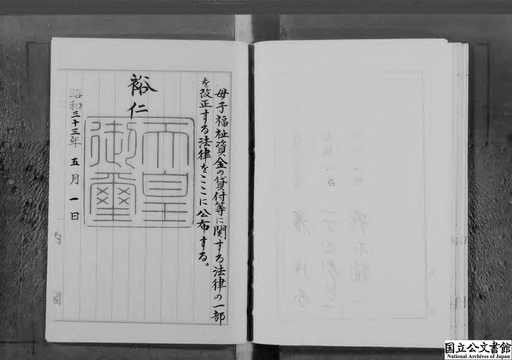 母子福祉資金の貸付等に関する法律の一部
を改正する法律をここに公布する。
裕仁
天皇
御璽
昭和三十三年五月一日
国立公文書館
National Archives of Japan